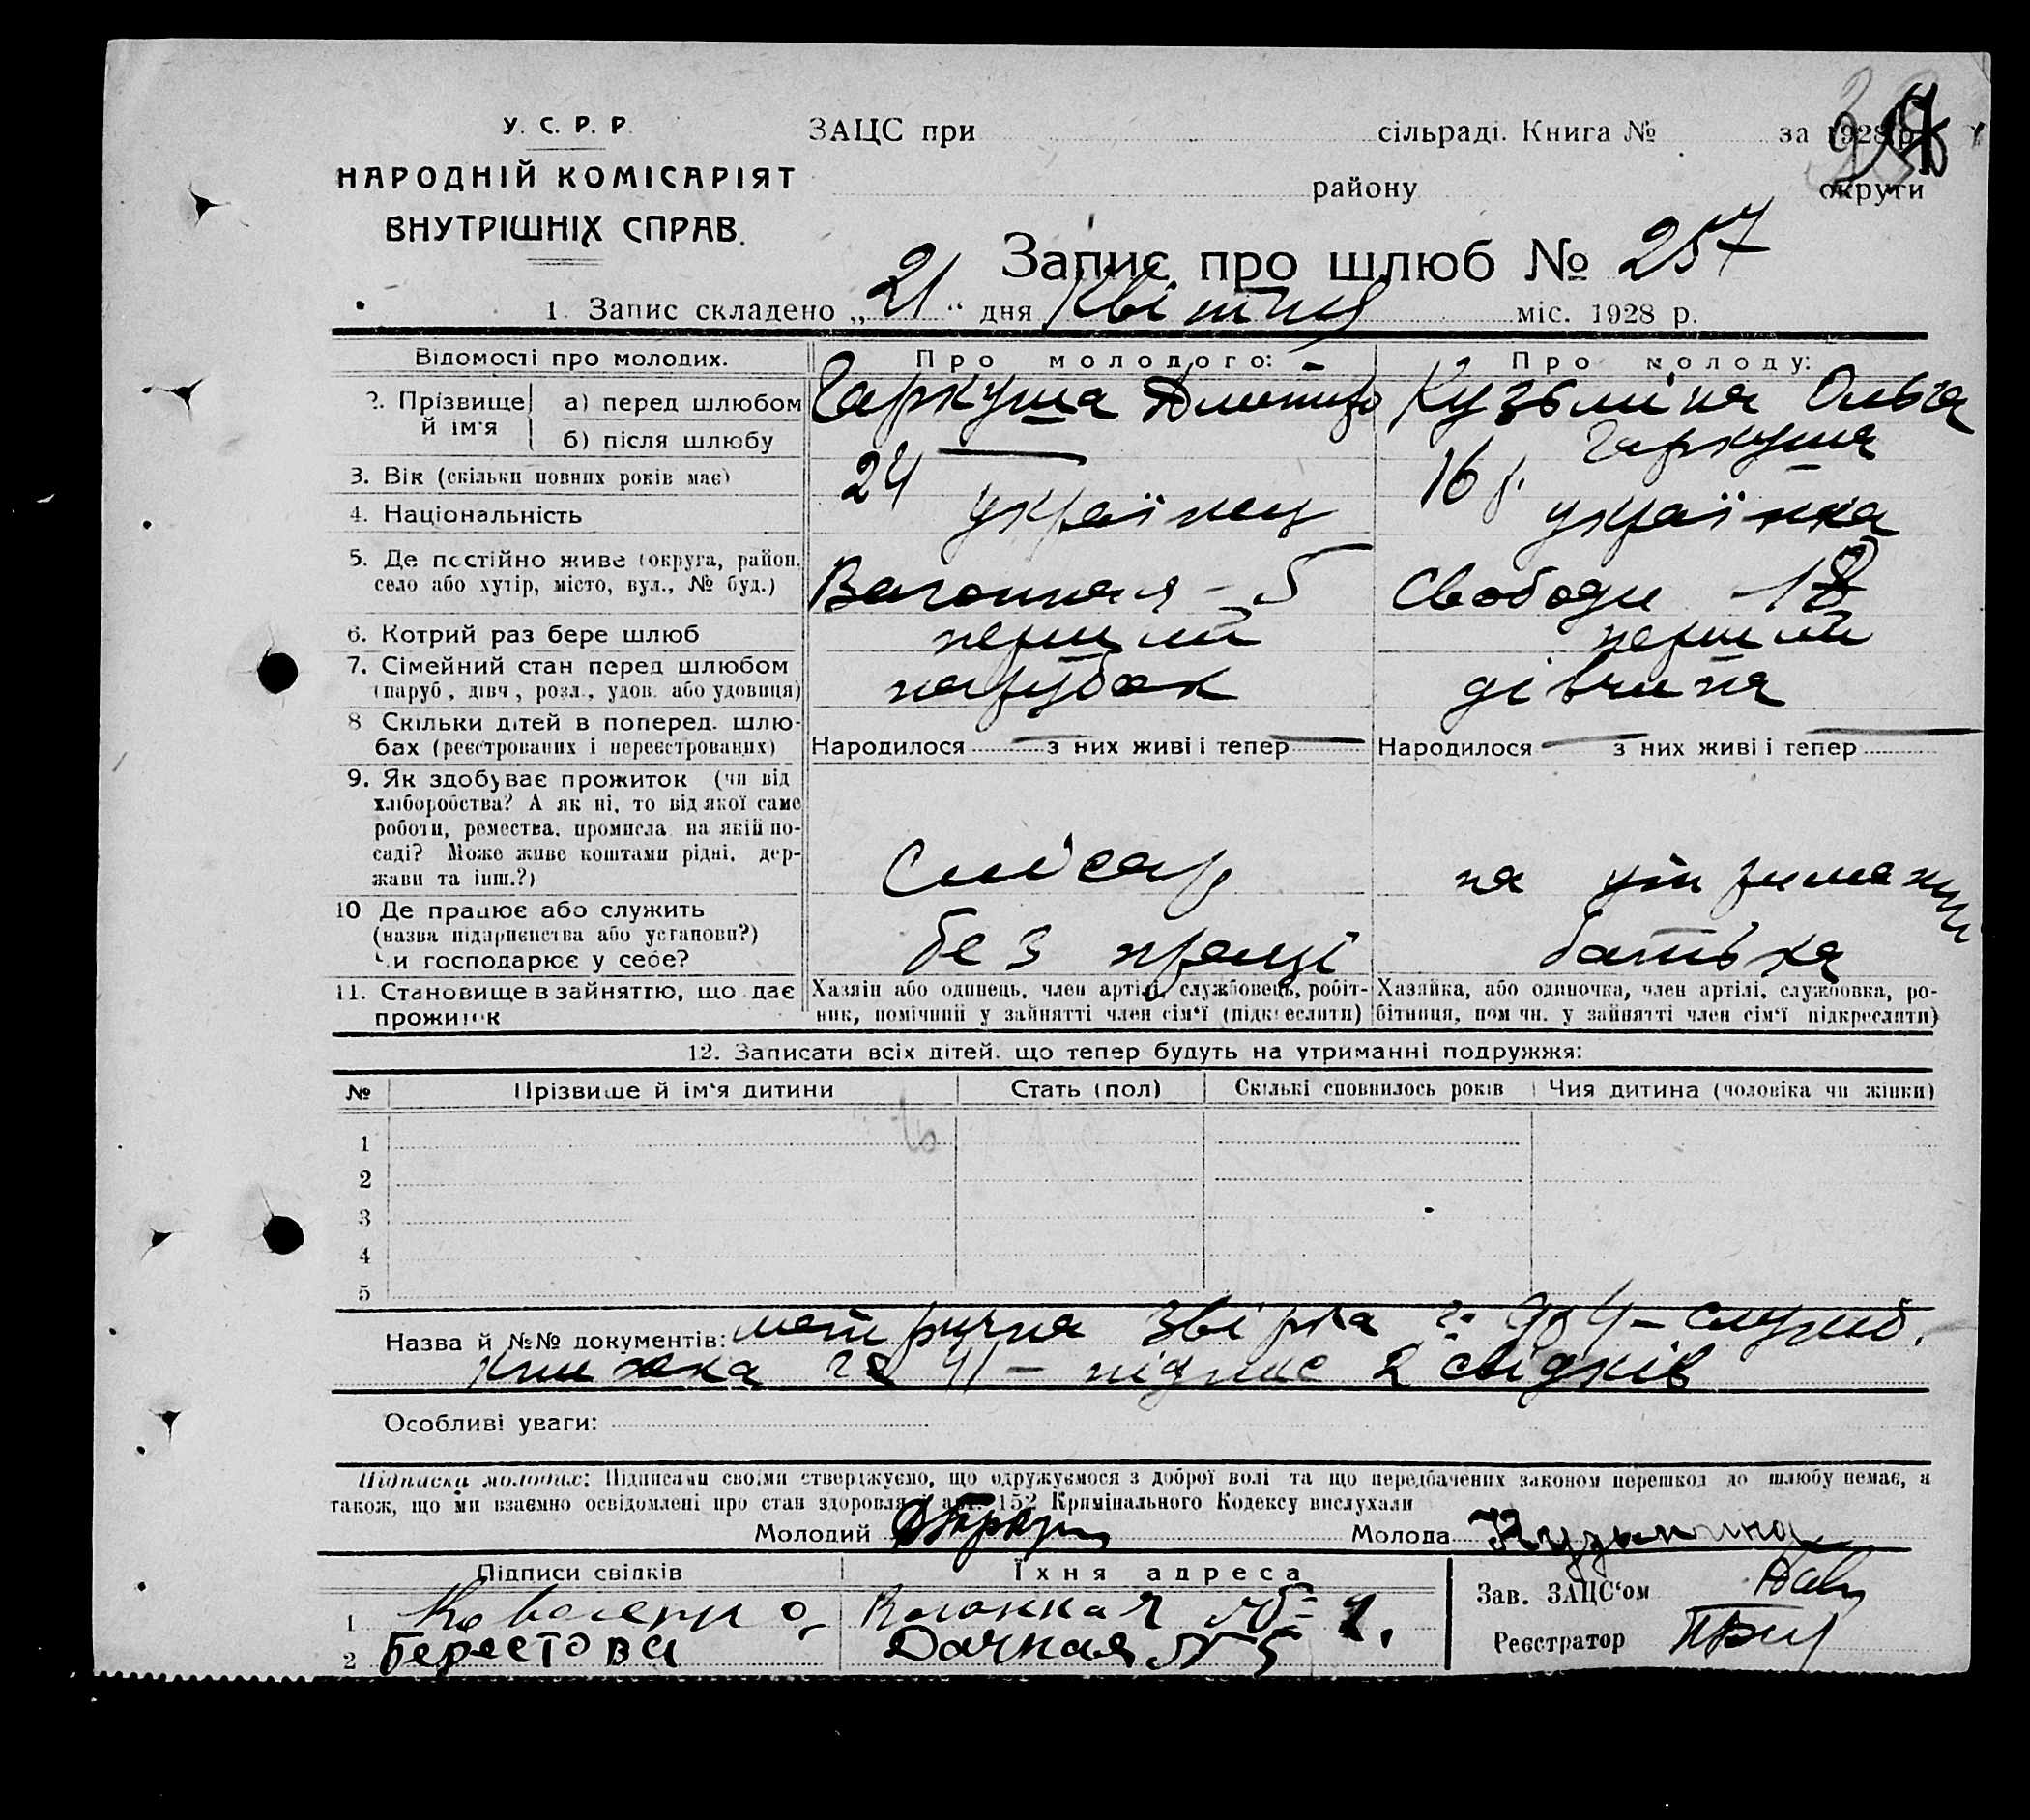 У. С. Р. Р.
НАРОДНІЙ КОМІСАРІЯТ
ВНУТРІШНІХ СПРАВ.
ЗАЦС при сільраді. Книга № за 1928 р.
району округи
Запис про шлюб № 257
1. Запис складено „21“ дня Квітня міс. 1928 р.
Відомості про молодих. Про молодого: Про молоду:
2. Прізвище й ім'я а) перед шлюбом Гаркуша Дмитро Кузьміна Ольга
б) після шлюбу — Гаркуша
3. Вік (скільки повних років має) 24 16 р.
4. Національність українец українка
5. Де постійно живе (округа, район,
село або хутір, місто, вул., № буд.) Вагонная - 5 Свободи
6. Котрий раз бере шлюб перший перший
7. Сімейний стан перед шлюбом
(паруб., дівч., розл., удов. або удовиця) парубок дівчина
8 Скільки дітей в поперед. шлю-
бах (реєстрованих і нереєстрованих) Народилося — з них живі і тепер — Народилося — з них живі і тепер —
9. Як здобуває прожиток (чи від
хліборобства? А як ні, то від якої саме
роботи, ремества, промисла, на якій по-
саді? Може живе коштами рідні, дер-
жави та інш.?) Слюсар на утриманні
10 Де працює або служить
(назва підприємства або установи?)
Чи господарює у себе? без праці батька
11. Становище в зайняттю, що дає
прожиток
Хазяїн або одинець, член артілі, службовець, робіт-
ник, помічний у зайнятті член сім'ї (підкреслити)
Хазяйка, або одиночка, член артілі, службовка, ро-
бітниця, пом чн. у зайнятті член сім'ї підкреслити)
12. Записати всіх дітей, що тепер будуть на утриманні подружжя:
№ Прізвище й ім'я дитини Стать (пол) Скількі сповнилось років Чия дитина (чоловіка чи жінки)
1
2
3
4
5
Назва й №№ документів: метрична звірка служб.
книжка підпис 2 свідків
Особливі уваги:
Підписка молодих: Підписами своїми стверджуємо, що одружуємося з доброї волі та що передбачених законом перешкод до шлюбу немає, а
також, що ми взаємно освідомлені про стан здоровля й арт. 152 Кримінального Кодексу вислухали
Молодий Молода Кузьмина
Підписи свідків Їхня адреса
1 Коваленко Вагонная № 1.
2 Берестова Дачная № 5
Зав. ЗАЦС'ом
Реєстратор